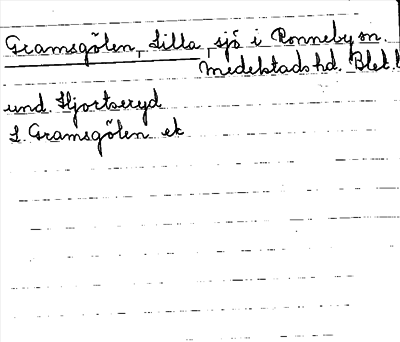 Gramsgölen, Lilla, sjö i Ronneby sn.
Medelstads hd. Blek. l
und. Hjortseryd
L Gramsgölen ek